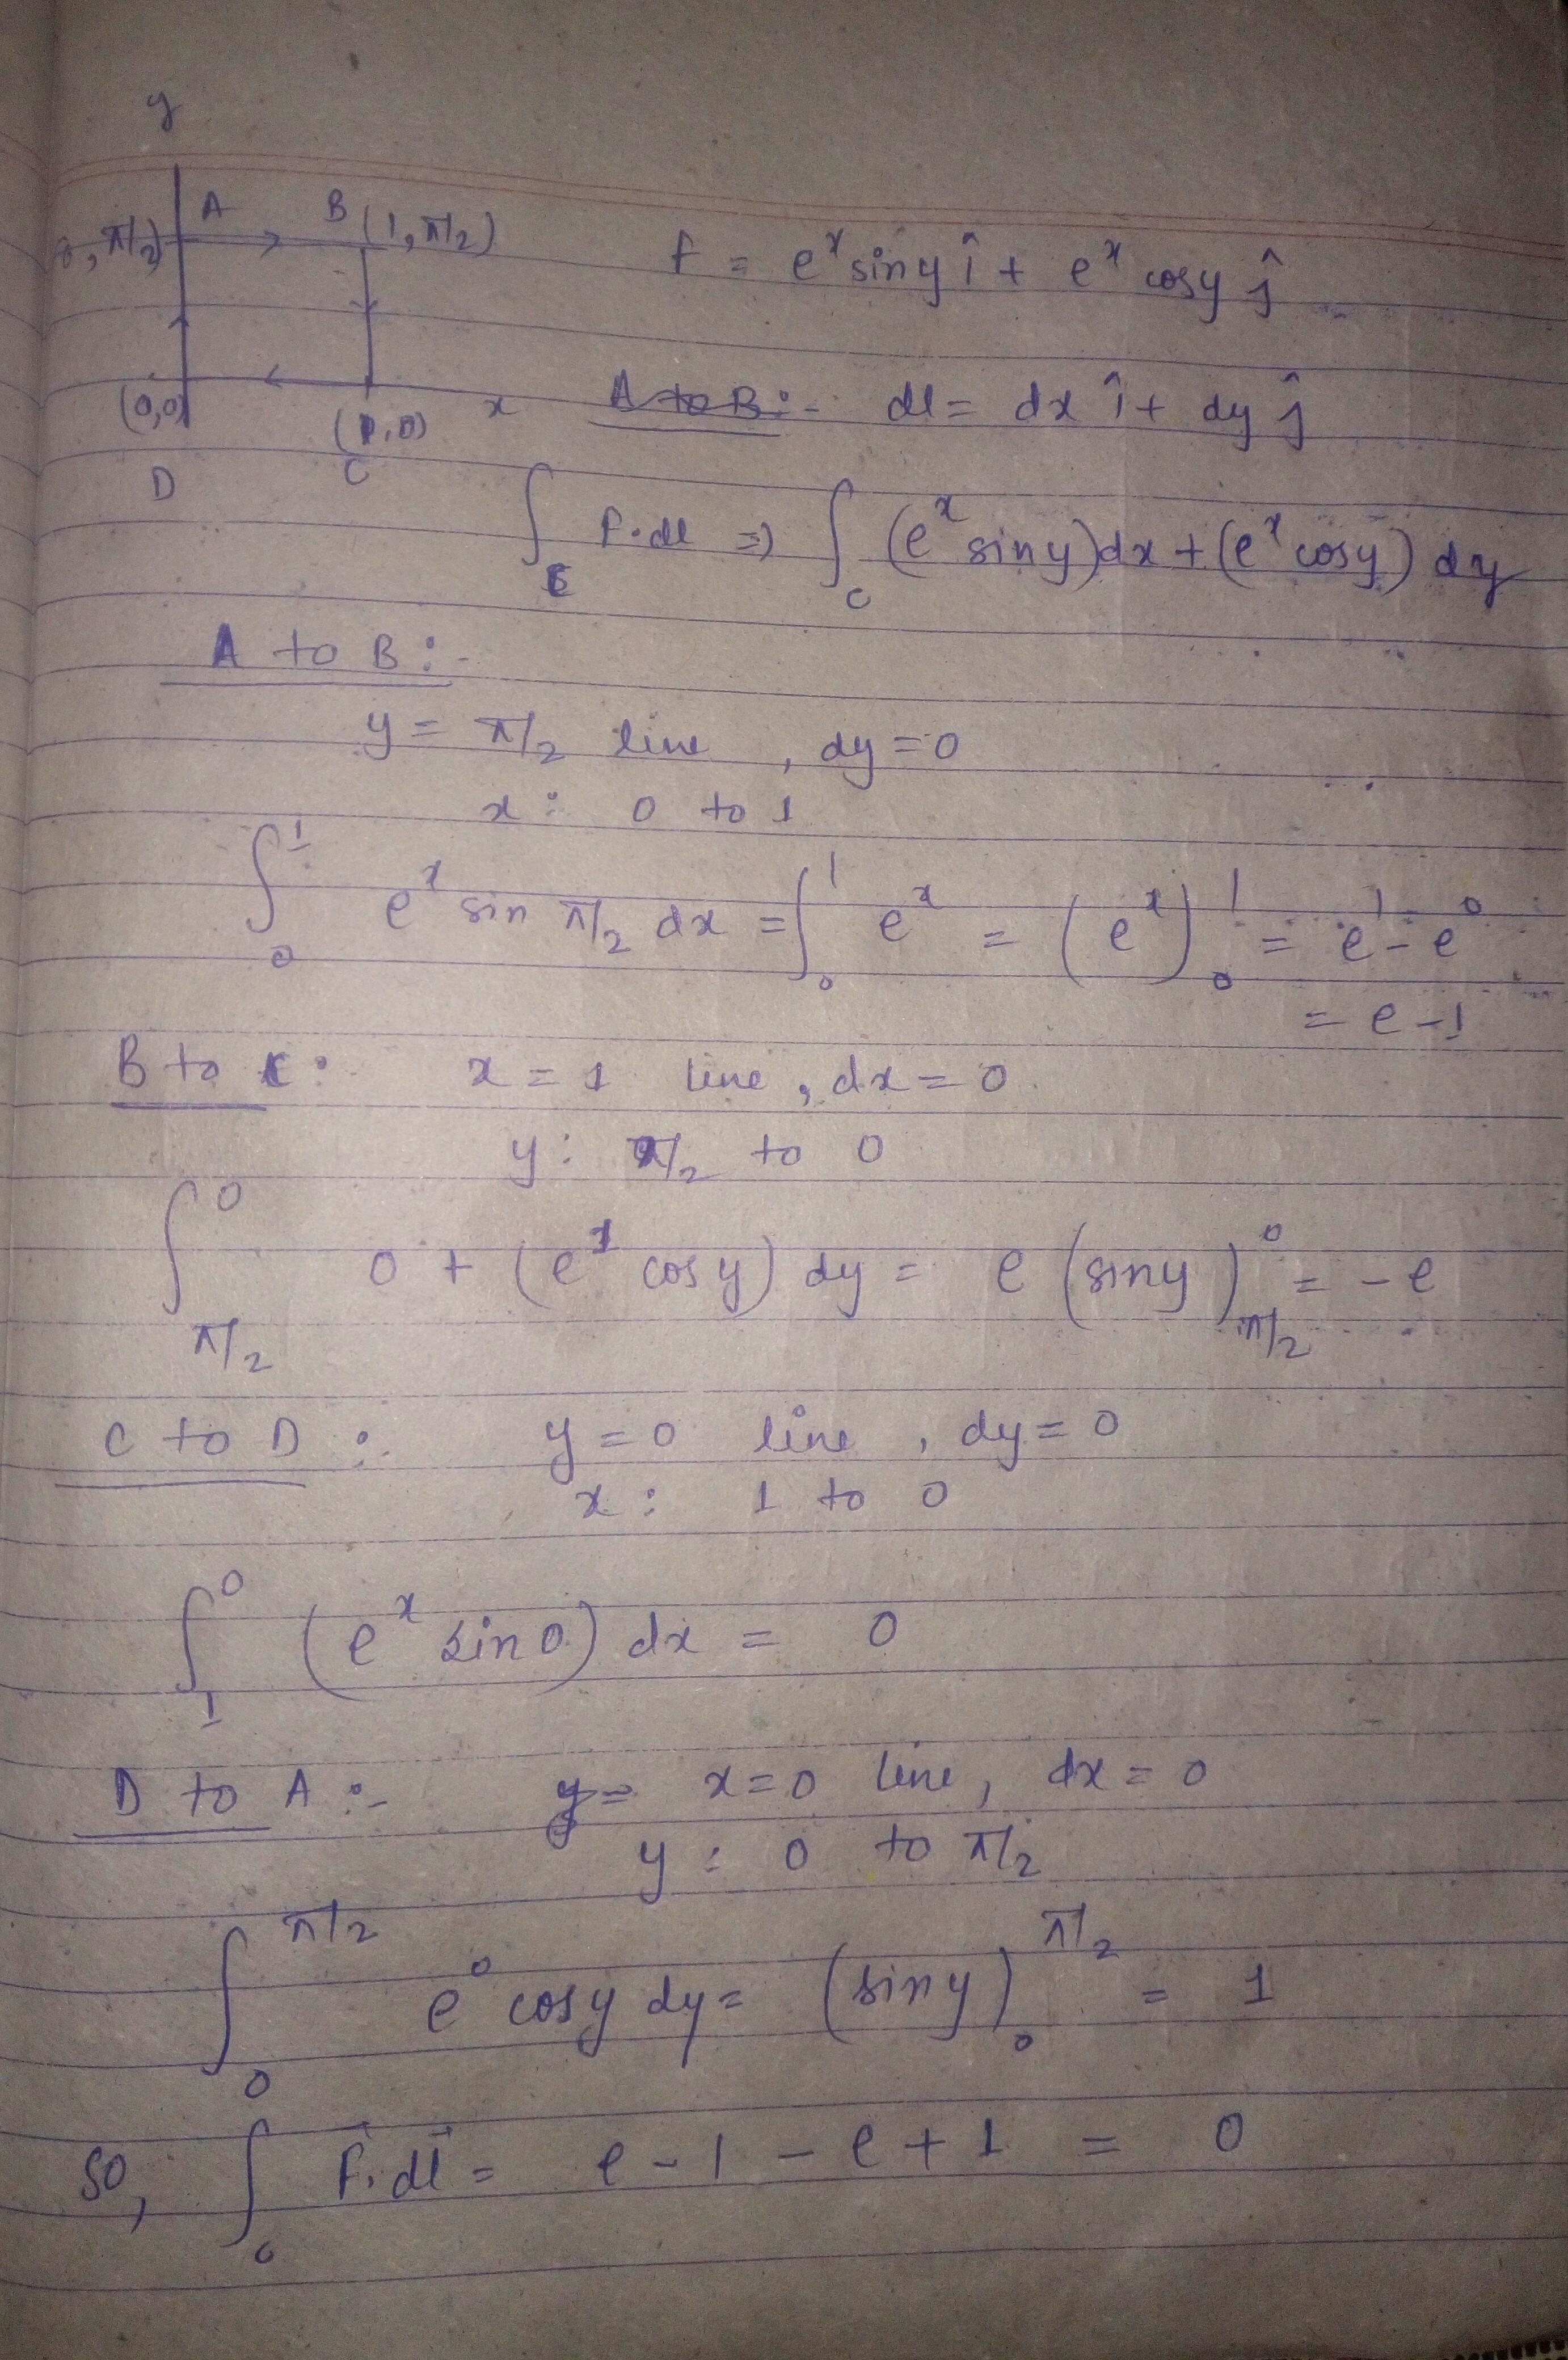 y
A B (1, π/2)
, π/2)
f = eˣ sin y î + eˣ cos y ĵ
(0,0) (1,0) x
D C
A to B :- dl = dx î + dy ĵ
∫_C F.dl ⇒ ∫_C (eˣ sin y) dx + (eˣ cos y) dy
A to B :-
y = π/2 line , dy = 0
x : 0 to 1
∫₀¹ eˣ sin π/2 dx = ∫₀¹ eˣ = (eˣ)₀¹ = e¹ - e⁰
= e - 1
B to C : x = 1 line , dx = 0
y : π/2 to 0
∫_{π/2}^0 0 + (e¹ cos y) dy = e (sin y)_{π/2}^0 = - e
C to D : y = 0 line , dy = 0
x : 1 to 0
∫₁⁰ (eˣ sin 0) dx = 0
D to A :- y = x = 0 line, dx = 0
y : 0 to π/2
∫_0^{π/2} e⁰ cos y dy = (sin y)_0^{π/2} = 1
So, ∫_C F⃗. dl⃗ = e - 1 - e + 1 = 0